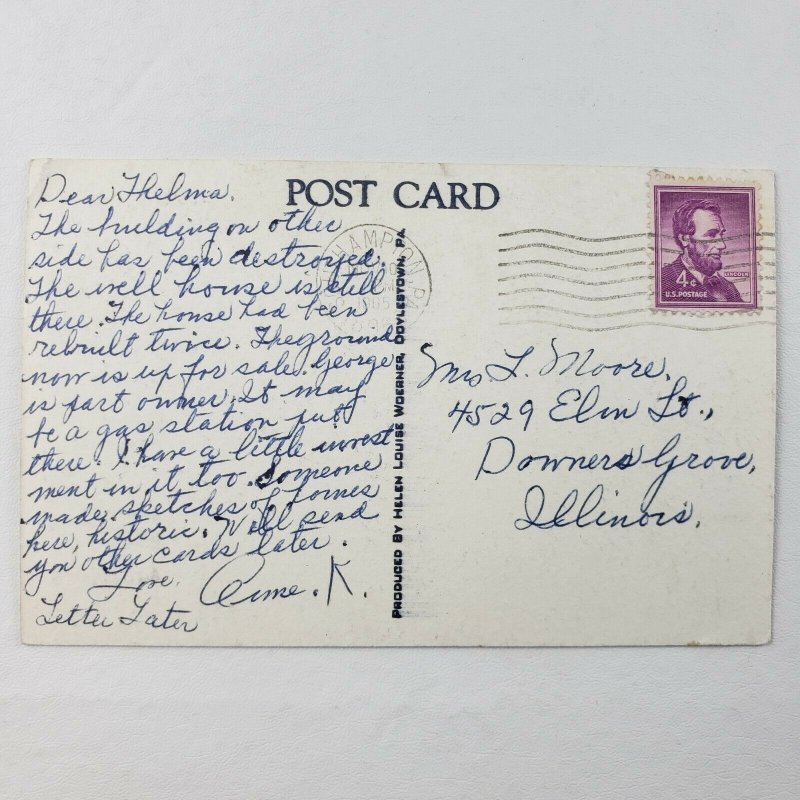 POST CARD
Dear Thelma.
The building on other
side has been destroyed.
The well house is still
there. The house had been
rebuilt twice. The ground
now is up for sale. George
is part owner. It may
be a gas station put
there. I have a little invest
ment in it too. Someone
made sketches of
here, historic. Will send
you other cards later.
Love,
Anne. K.
Letter Later
PRODUCED BY HELEN LOUISE WOERNER, DOYLESTOWN, PA.
HAMPTON, PA
1965
4¢
LINCOLN
U.S. POSTAGE
Mrs L. Moore,
4529 Elm St.,
Downers Grove,
Illinois.